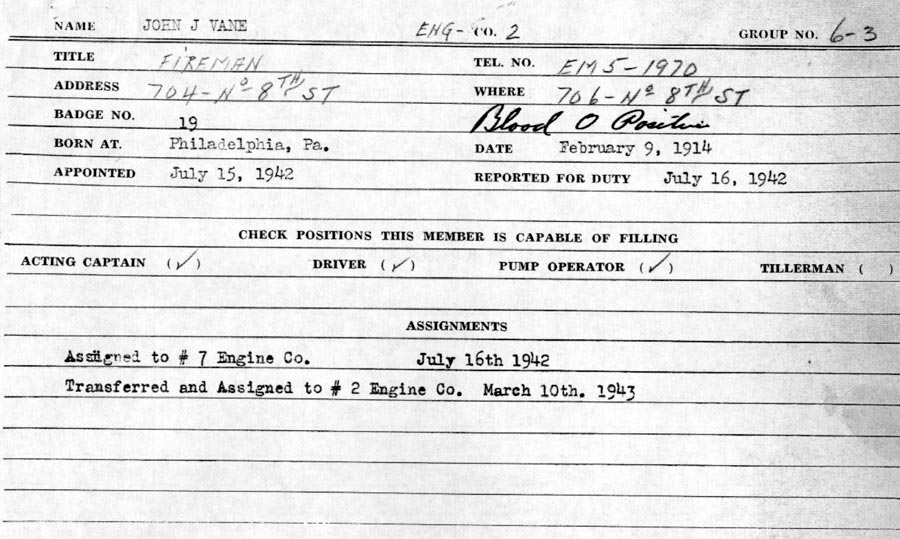 NAME JOHN J VANE ENG- CO. 2 GROUP NO. 6-3
TITLE FIREMAN TEL. NO. EM5-1970
ADDRESS 704-No 8TH ST WHERE 706-No 8TH ST
BADGE NO. 19 Blood O Positive
BORN AT. Philadelphia, Pa. DATE February 9, 1914
APPOINTED July 15, 1942 REPORTED FOR DUTY July 16, 1942
CHECK POSITIONS THIS MEMBER IS CAPABLE OF FILLING
ACTING CAPTAIN (✓) DRIVER (✓) PUMP OPERATOR (✓) TILLERMAN ( )
ASSIGNMENTS
Assigned to # 7 Engine Co. July 16th 1942
Transferred and Assigned to # 2 Engine Co. March 10th. 1943